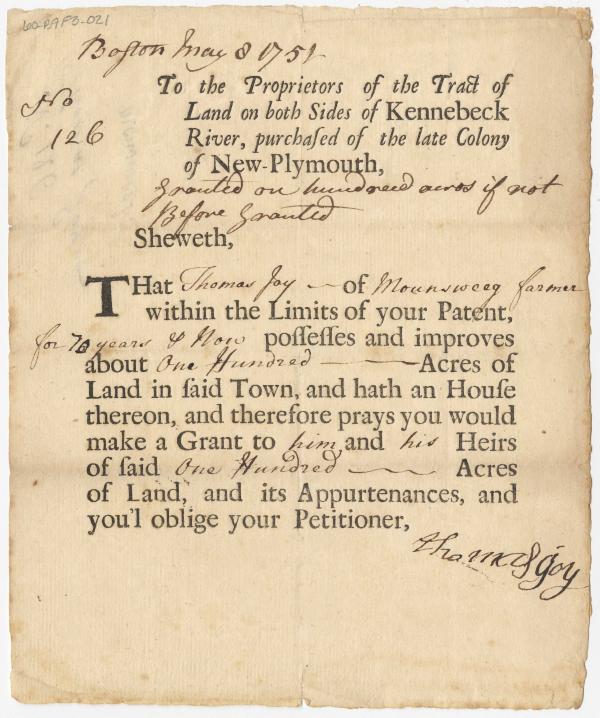 60-PAF3-021
Boston May 8 1751
No
126
To the Proprietors of the Tract of
Land on both Sides of Kennebeck
River, purchaſed of the late Colony
of New-Plymouth,
Granted on hundreed acros if not
Before Granted
Sheweth,
THat Thomas Joy of Mounsweeg farmer
within the Limits of your Patent,
for years & Now poſſeſſes and improves
about One Hundred Acres of
Land in ſaid Town, and hath an Houſe
thereon, and therefore prays you would
make a Grant to him and his Heirs
of ſaid One Hundred Acres
of Land, and its Appurtenances, and
you'l oblige your Petitioner,
Joy